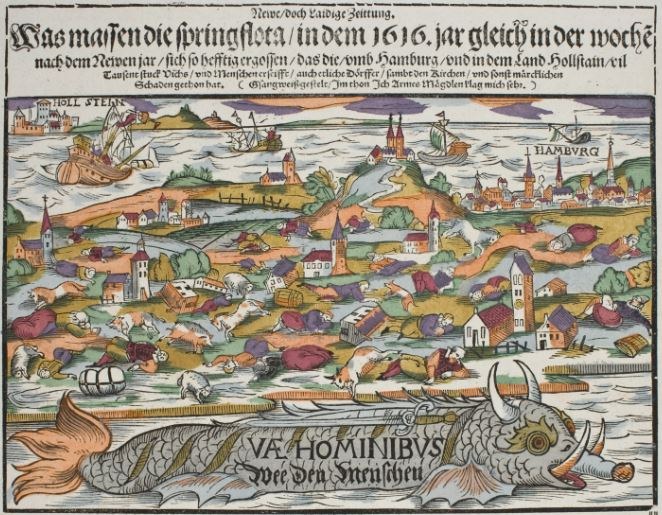 Newe/doch Laidige Zeittung.
Was massen die springflota/in dem 1616. jar gleich in der wochē
nach dem Newen jar/sich so hefftig ergossen/das die/vmb Hamburg/vnd in dem Land Hollstain/vil
Tausent stuck Vichs/vnd Menschen erseufft/auch etliche Dörffer/sambt den Kirchen/vnd sonst märcklichen
Schaden gethon hat. (Gsangweiß gestelt/Im thon Ich Armes Mägdlen klag mich sehr.)
HOLLSTEIN
HAMBVRG
VÆ HOMINIBVS
Wee Den Menschen